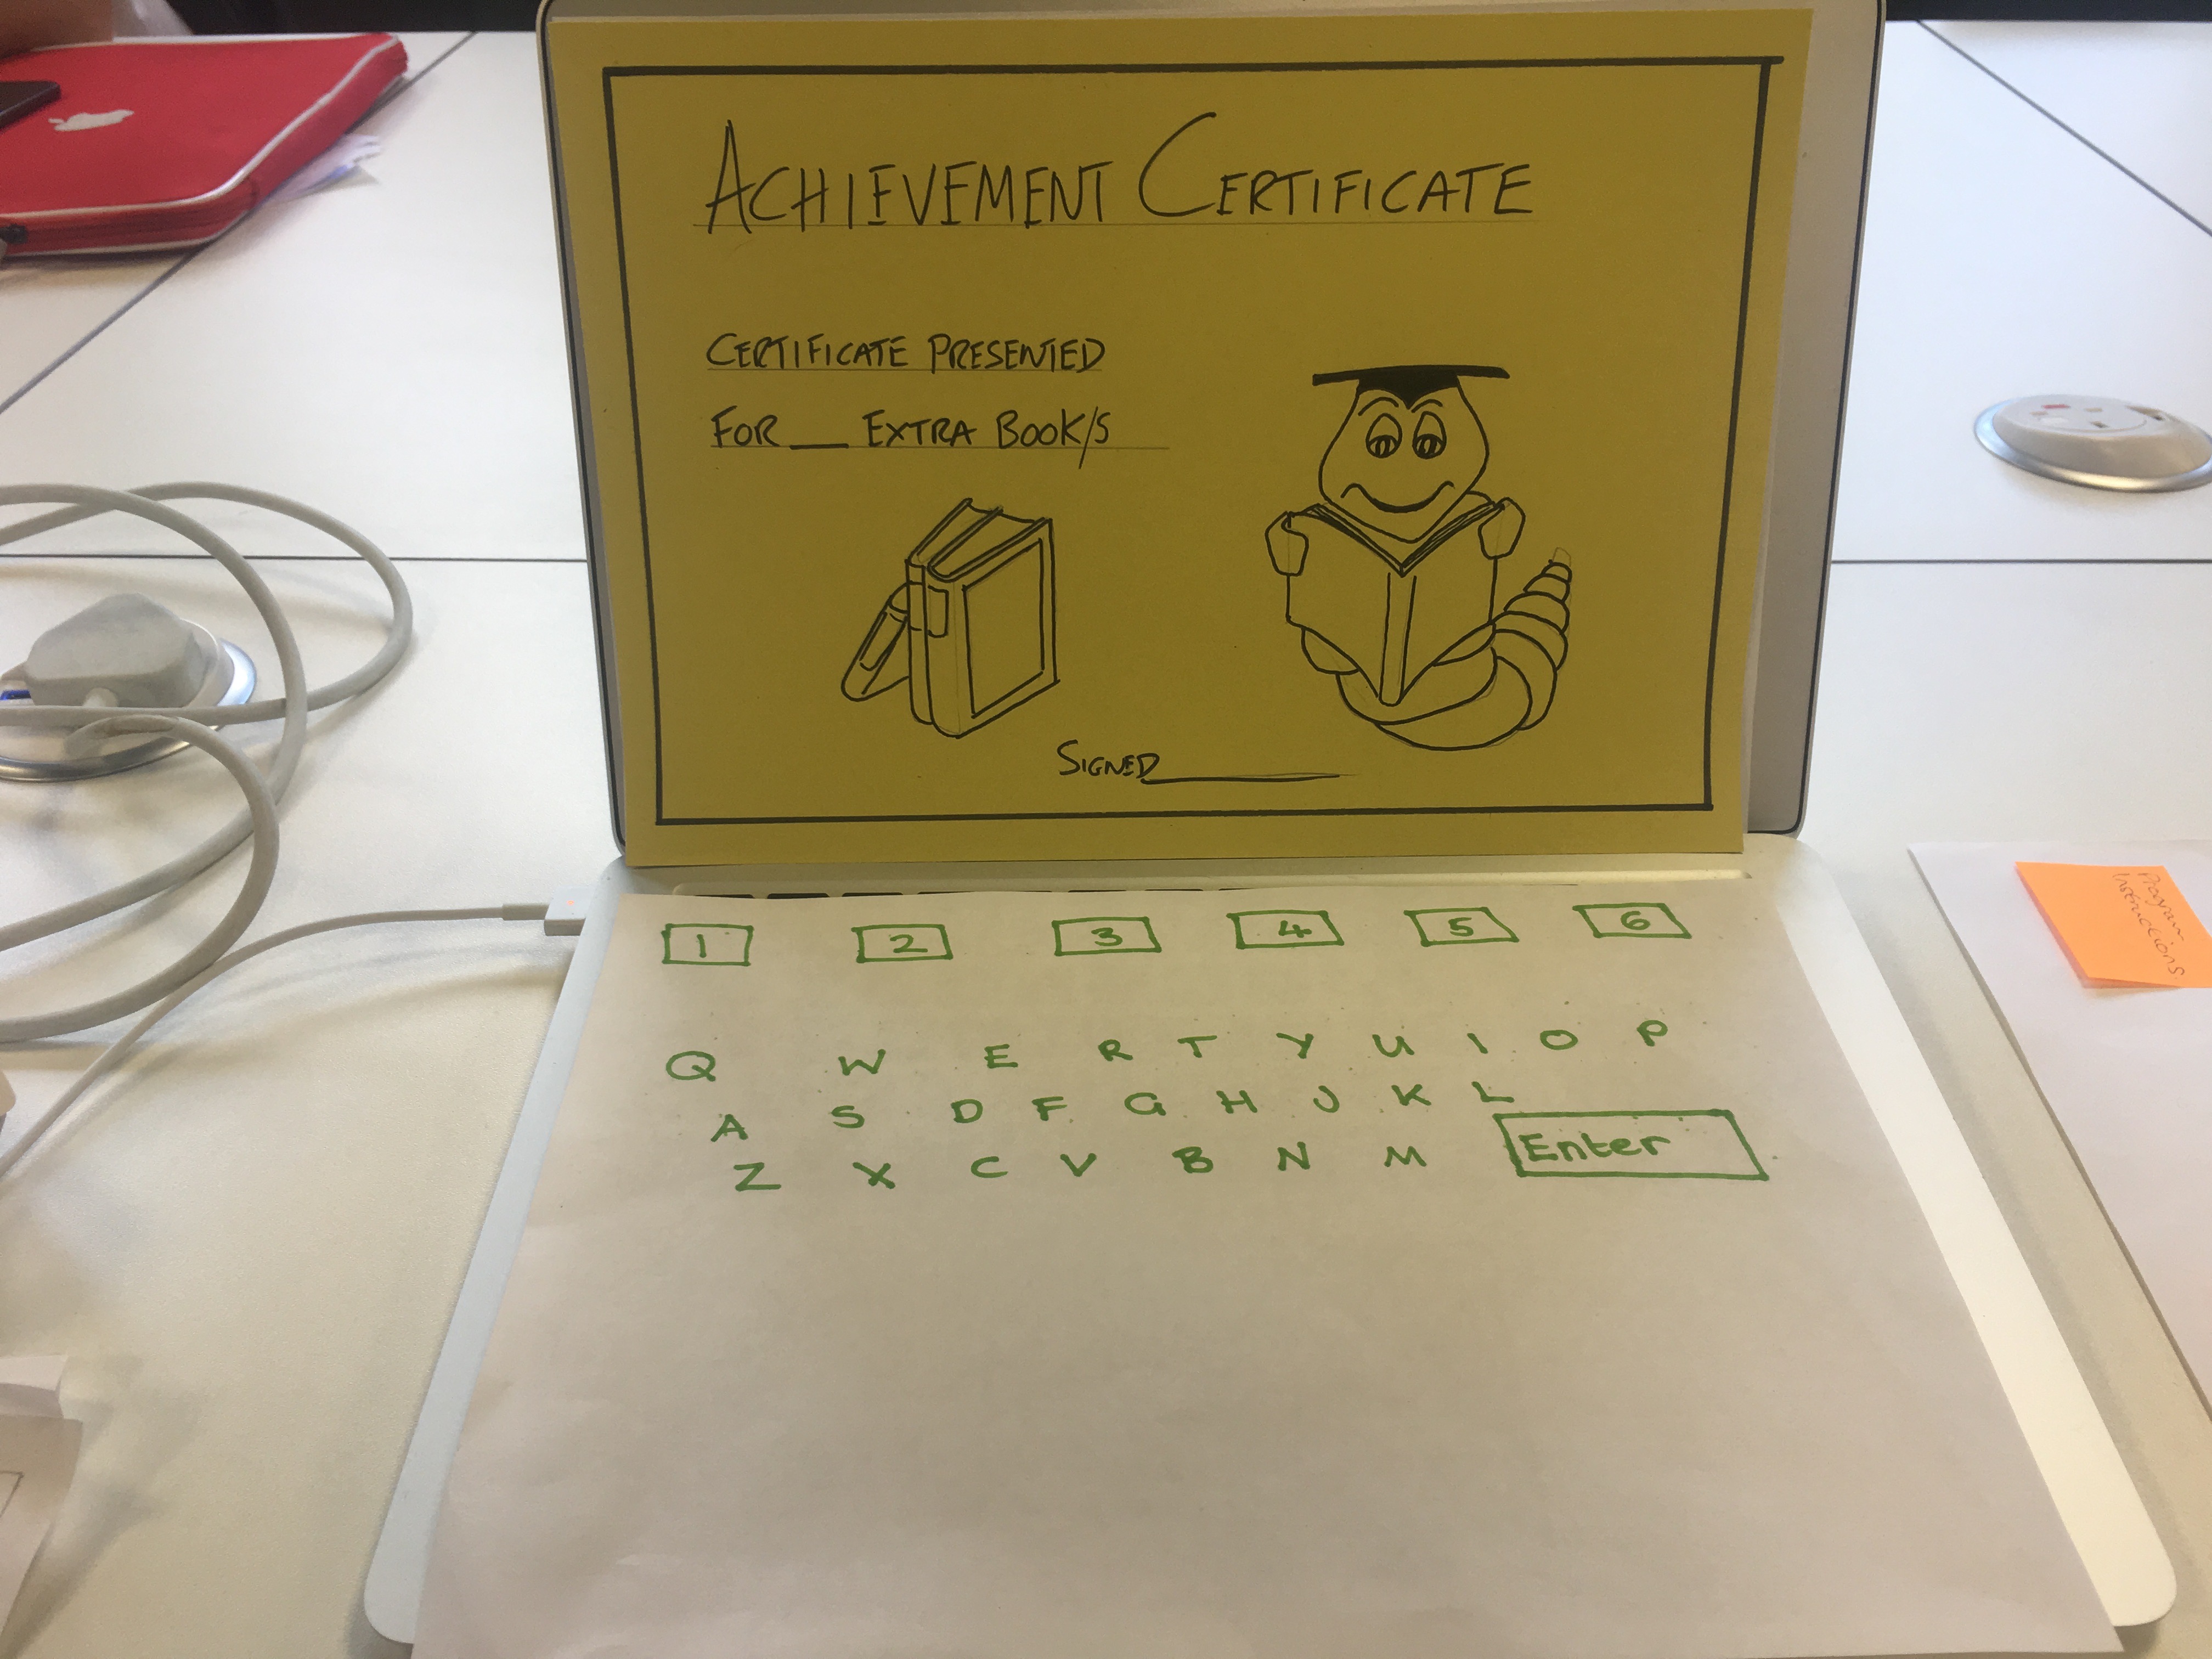 ACHIEVEMENT CERTIFICATE
CERTIFICATE PRESENTED
FOR __ EXTRA BOOK/S
SIGNED__________
1 2 3 4 5 6
Q W E R T Y U I O P
A S D F G H J K L
Z X C V B N M Enter
Program
Instructions